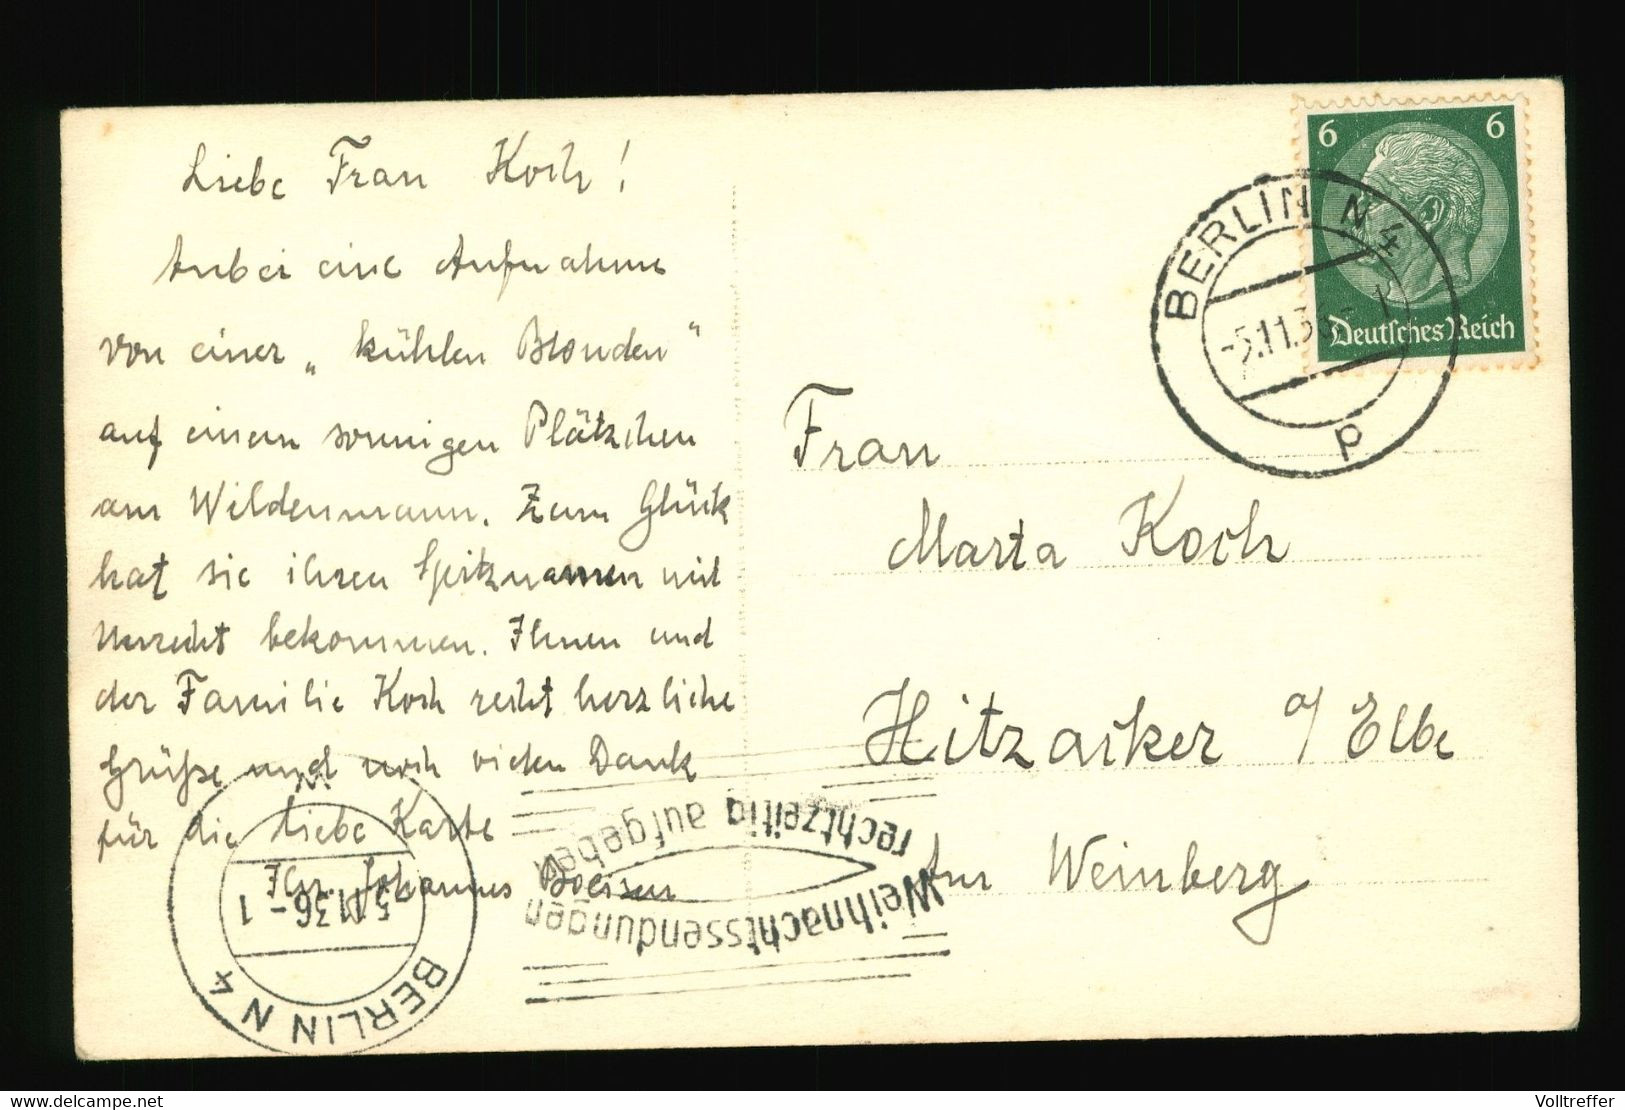 Liebe Frau Koch!
Anbei eine Aufnahme
von einer „kühlen Blonden"
auf einem sonnigen Plätzchen
am Wildenmann. Zum Glück
hat sie ihren Spitznamen mit
Unrecht bekommen. Ihnen und
der Familie Koch recht herzliche
Grüße und noch vielen Dank
für die liebe Karte
Ihr Johannes
6 6
Deutsches Reich
BERLIN N 4
-5.11.36
p
Frau
Marta Koch
Hitzacker a/Elbe
Am Weinberg
Weihnachtssendungen
rechtzeitig aufgeben
BERLIN N 4
5.11.36-1
www.delcampe.net
Volltreffer